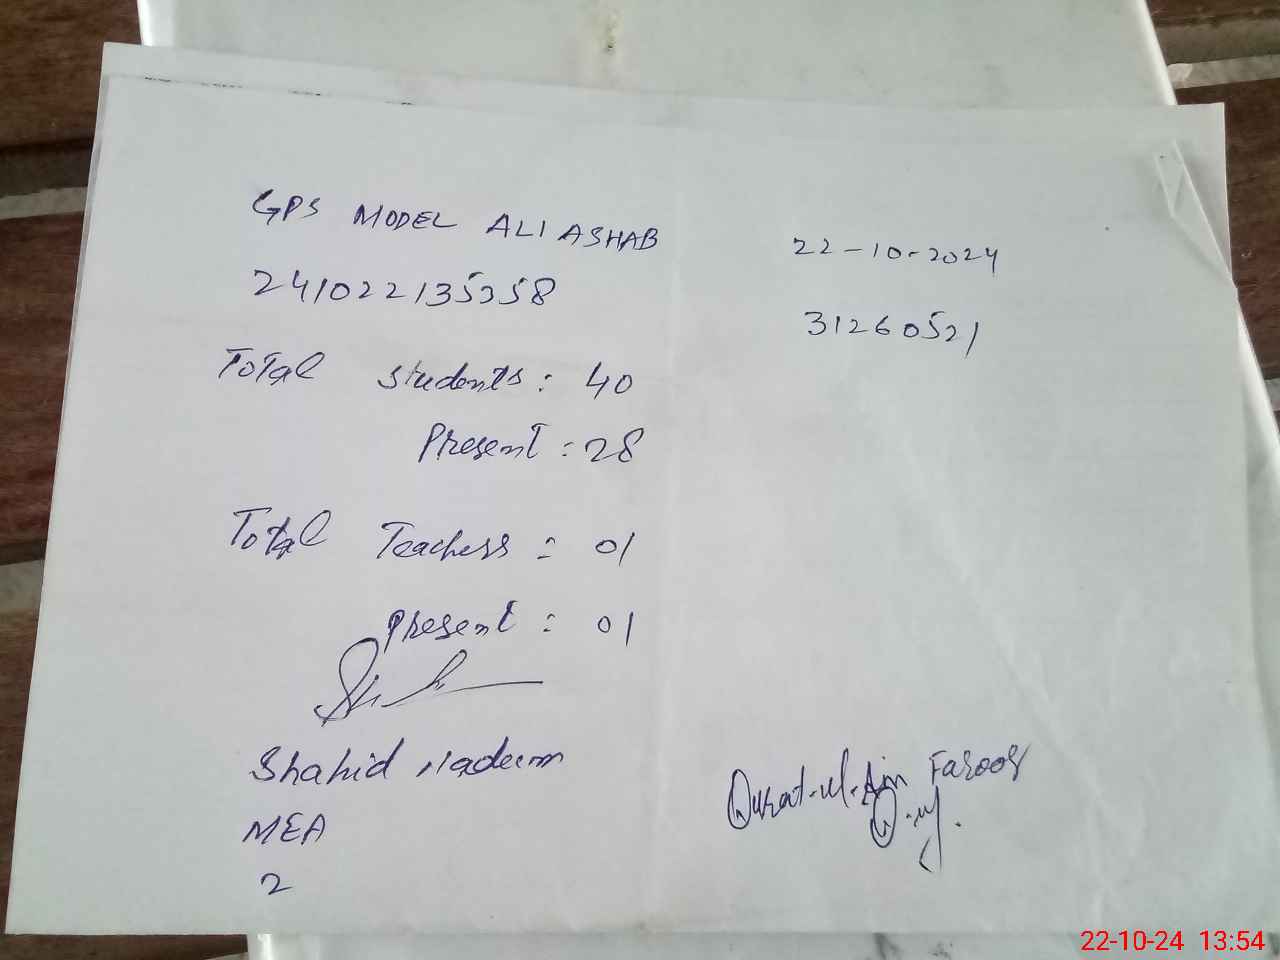 GPS MODEL ALI ASHAB
22-10-2024
241022135358
31260521
Total Students: 40
Present: 28
Total Teachers: 01
Present: 01
Shahid Nadeem
MEA
2
Qurat-ul-Ain Farooq
22-10-24 13:54